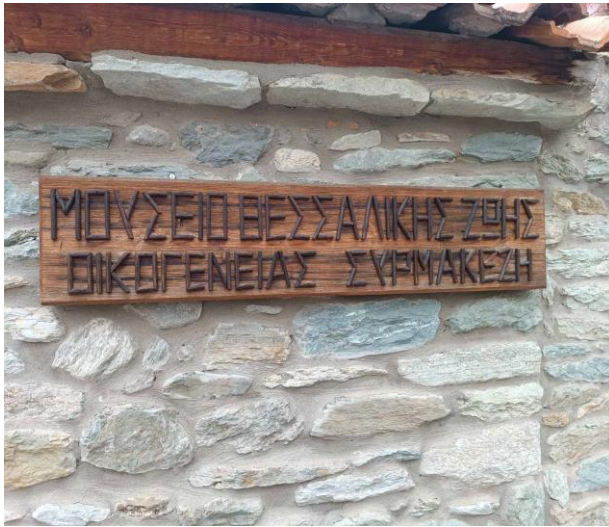 ΜΟΥΣΕΙΟ ΘΕΣΣΑΛΙΚΗΣ ΖΩΗΣ
ΟΙΚΟΓΕΝΕΙΑΣ ΣΥΡΜΑΚΕΖΗ